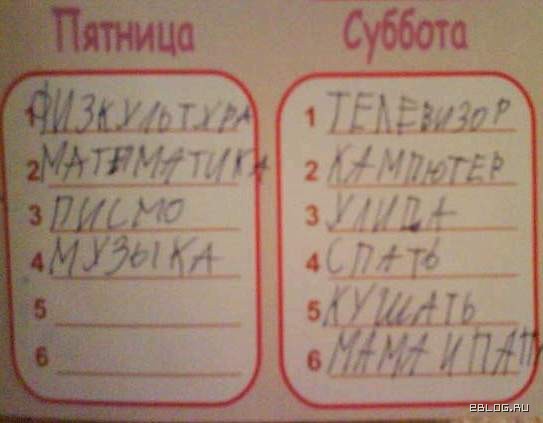 Пятница
1 ФИЗКУЛЬТУРА
2 МАТЕМАТИКА
3 ПИСМО
4 МУЗЫКА
5
6
Суббота
1 ТЕЛЕВИЗОР
2 КАМПЮТЕР
3 УЛИЦА
4 СПАТЬ
5 КУШАТЬ
6 МАМА И ПАПА
2BLOG.RU